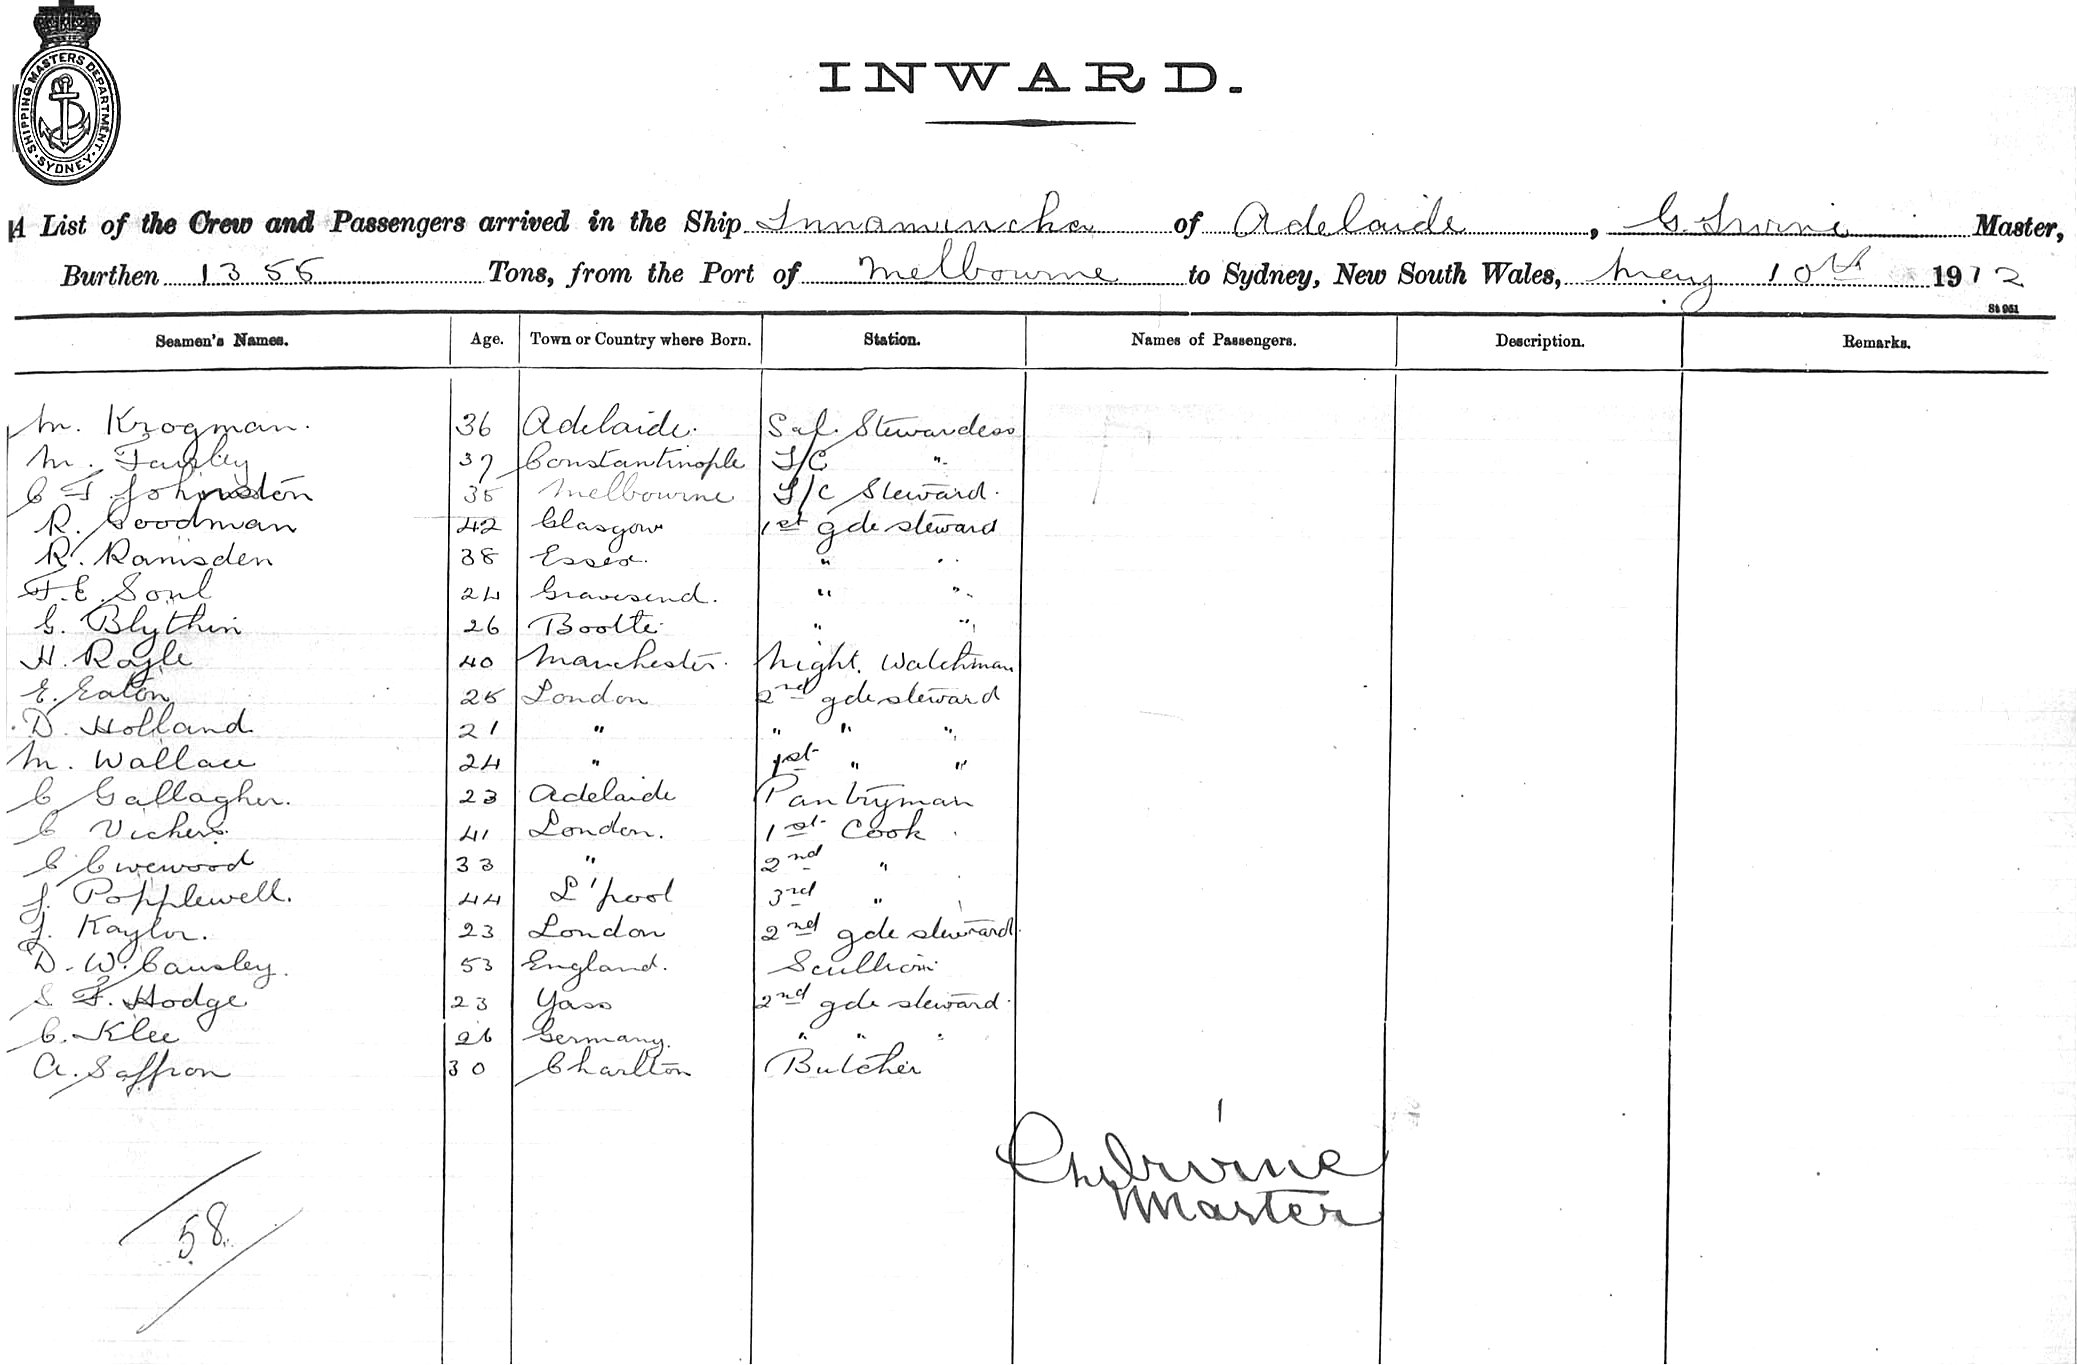 SHIPPING MASTERS DEPARTMENT. SYDNEY.
INWARD.
A List of the Crew and Passengers arrived in the Ship Innamincka of Adelaide, G. Irvine Master,
Burthen 1355 Tons, from the Port of Melbourne to Sydney, New South Wales, May 10th 1912
St 951
Seamen's Names. Age. Town or Country where Born. Station. Names of Passengers. Description. Remarks.
M. Krogman. 36 Adelaide. Sal. Stewardess
M. 37 Constantinople S/C "
C F Johnston 35 Melbourne S/C Steward.
R. Goodman 42 Glasgow 1st gde steward
R. Ramsden 38 Essex. " "
F. E. Soul 24 Gravesend. " "
G. Blythin 26 Bootle " "
H. Royle 40 Manchester. Night. Watchman
E. Eaton 25 London 2nd gde steward
D. Holland 21 " " " "
M. Wallace 24 " 1st " "
C Gallagher. 23 Adelaide Pantryman
C Vickers. 41 London. 1st Cook
C 33 " 2nd "
J. Popplewell. 44 L'pool 3rd "
J. Kaylor. 23 London 2nd gde steward.
D. W. Causley. 53 England. Scullion
S F. Hodge 23 Yass 2nd gde steward.
C. Klee 26 Germany. " " "
A. Saffron 30 Charlton Butcher
Irvine
Master
58.